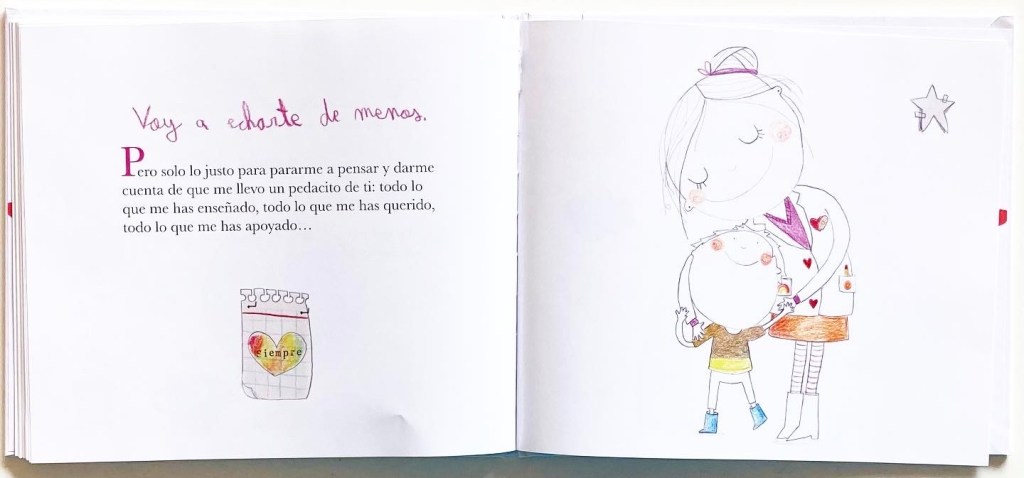 Voy a echarte de menos.
Pero solo lo justo para pararme a pensar y darme
cuenta de que me llevo un pedacito de ti: todo lo
que me has enseñado, todo lo que me has querido,
todo lo que me has apoyado…
siempre